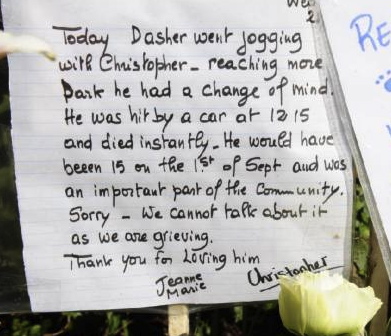 We
2
Today Dasher went jogging
with Christopher - reaching more
Park he had a change of mind.
He was hit by a car at 12 15
and died instantly - He would have
beeen 15 on the 1.st of Sept and was
an important part of the Community.
Sorry - We cannot talk about it
as we are grieving.
Thank you for Loving him
Jeanne
Marie
Christopher
RE